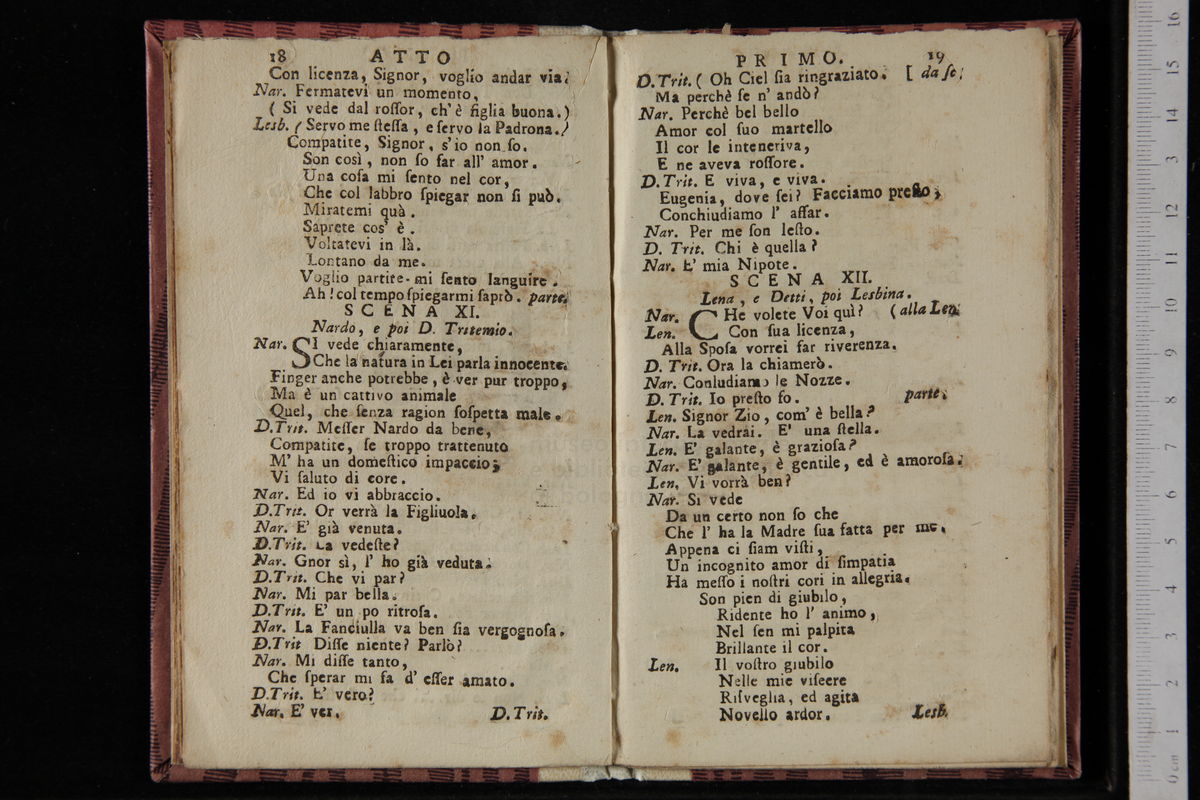 18 ATTO
Con licenza, Signor, voglio andar via.
Nar. Fermatevi un momento,
( Si vede dal roſſor, ch' è figlia buona.)
Lesb. ( Servo me ſteſſa, e ſervo la Padrona.)
Compatite, Signor, s'io non ſo.
Son così, non ſo far all' amor.
Una coſa mi ſento nel cor,
Che col labbro ſpiegar non ſi può.
Miratemi quà.
Saprete cos' è.
Voltatevi in là.
Lontano da me.
Voglio partite- mi ſento languire.
Ah! col tempo ſpiegarmi ſaprò. parte.
SCENA XI.
Nardo, e poi D. Tritemio.
Nar. SI vede chiaramente,
Che la natura in Lei parla innocente.
Finger anche potrebbe, è ver pur troppo,
Ma è un cattivo animale
Quel, che ſenza ragion ſoſpetta male.
D.Trit. Meſſer Nardo da bene,
Compatite, ſe troppo trattenuto
M' ha un domeſtico impaccio;
Vi ſaluto di core.
Nar. Ed io vi abbraccio.
D.Trit. Or verrà la Figliuola.
Nar. E' già venuta.
D.Trit. La vedeſte?
Nar. Gnor sì, l' ho già veduta.
D.Trit. Che vi par?
Nar. Mi par bella.
D.Trit. E' un po ritroſa.
Nar. La Fanciulla va ben ſia vergognoſa.
D.Trit Diſſe niente? Parlò?
Nar. Mi diſſe tanto,
Che ſperar mi fa d' eſſer amato.
D.Trit. E' vero?
Nar. E' ver. D. Trit.
PRIMO. 19
D.Trit. ( Oh Ciel ſia ringraziato. [ da ſe.
Ma perchè ſe n' andò?
Nar. Perchè bel bello
Amor col ſuo martello
Il cor le inteneriva,
E ne aveva roſſore.
D.Trit. E viva, e viva.
Eugenia, dove ſei? Facciamo preſto;
Conchiudiamo l' affar.
Nar. Per me ſon leſto.
D. Trit. Chi è quella?
Nar. E' mia Nipote.
SCENA XII.
Lena, e Detti, poi Lesbina.
Nar. CHe volete Voi quì? (alla Len.
Len. Con ſua licenza,
Alla Spoſa vorrei far riverenza.
D. Trit. Ora la chiamerò.
Nar. Conludiamo le Nozze.
D. Trit. Io preſto fo. parte.
Len. Signor Zio, com' è bella?
Nar. La vedrai. E' una ſtella.
Len. E' galante, è grazioſa?
Nar. E' galante, è gentile, ed è amoroſa.
Len. Vi vorrà ben?
Nar. Si vede
Da un certo non ſo che
Che l' ha la Madre ſua fatta per me.
Appena ci ſiam viſti,
Un incognito amor di ſimpatia
Ha meſſo i noſtri cori in allegria.
Son pien di giubilo,
Ridente ho l' animo,
Nel ſen mi palpita
Brillante il cor.
Len. Il voſtro giubilo
Nelle mie viſeere
Riſveglia, ed agita
Novello ardor. Lesb.